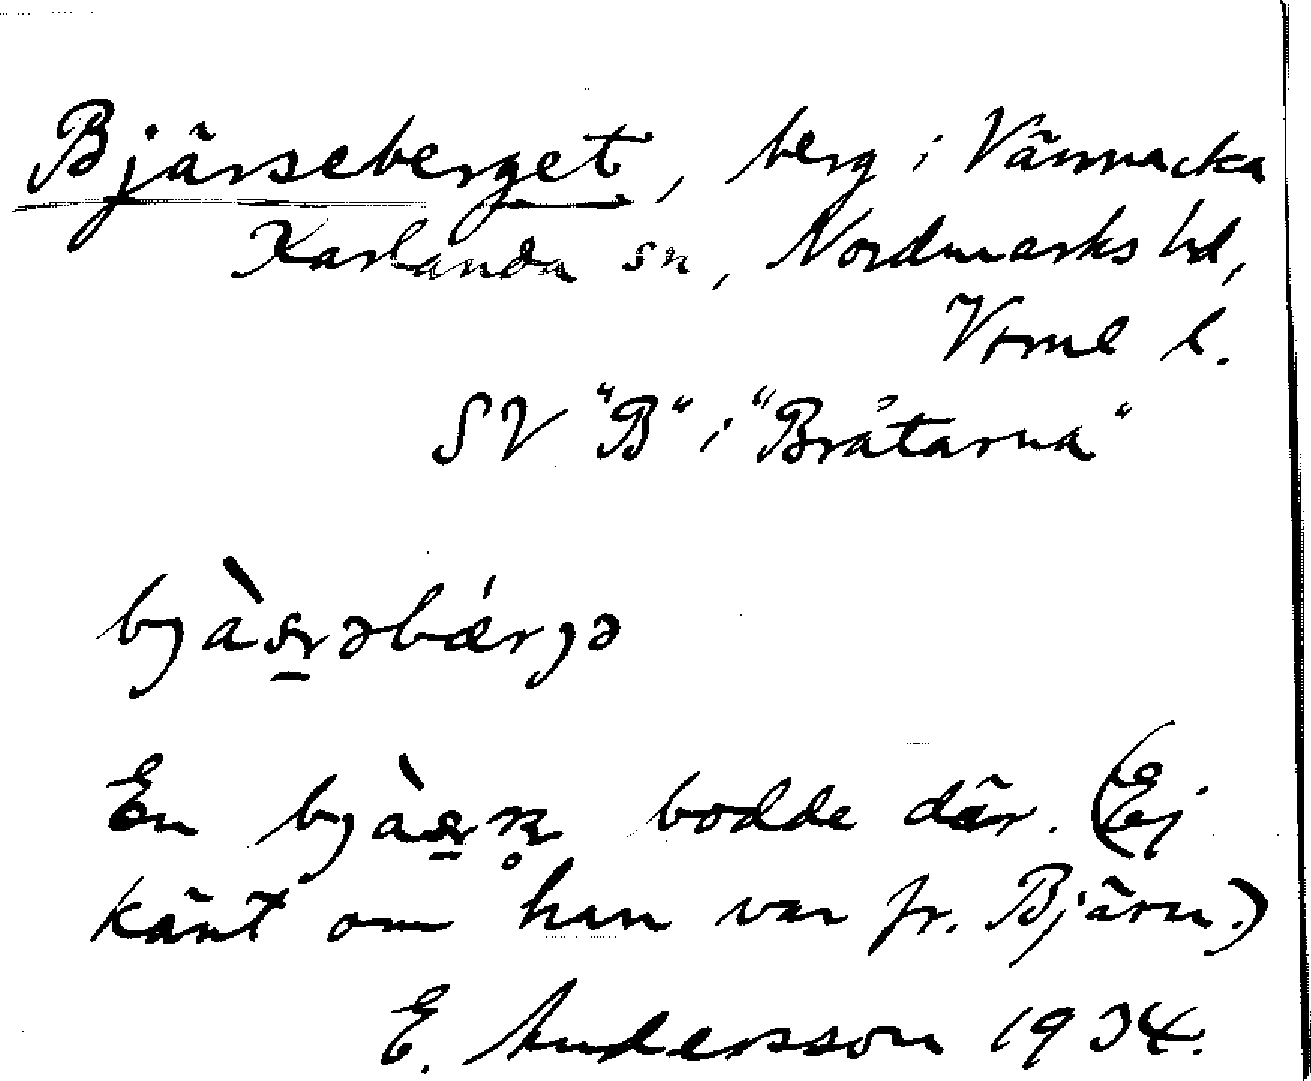 Bjärseberget, berg i Vännacka
Karlanda sn, Nordmarks hd,
Vrml l.
SV "B" i "Bråtarna"
En bodde där. (Ej
känt om han var fr. Bjärn.)
E. Andersson 1934.